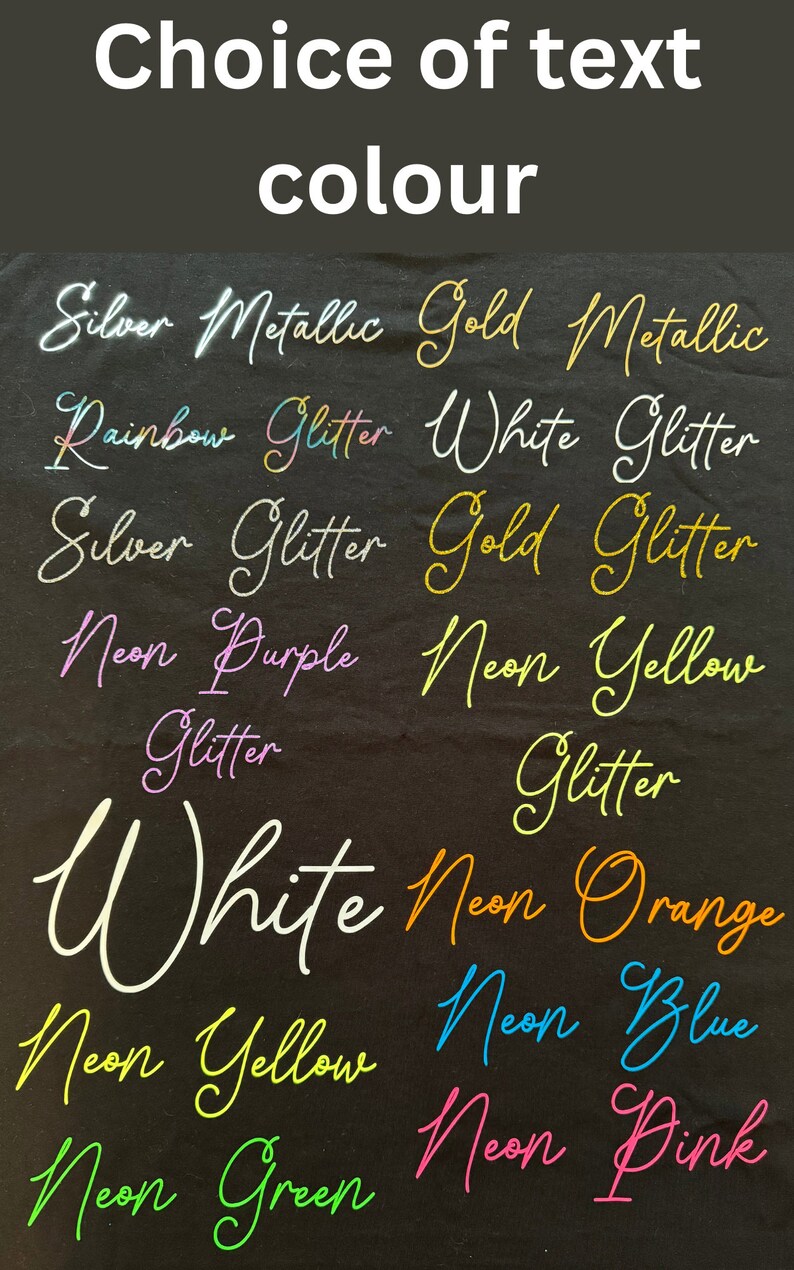 Choice of text
colour
Silver Metallic Gold Metallic
Rainbow Glitter White Glitter
Silver Glitter Gold Glitter
Neon Purple
Glitter
Neon Yellow
Glitter
White
Neon Orange
Neon Blue
Neon Yellow
Neon Pink
Neon Green